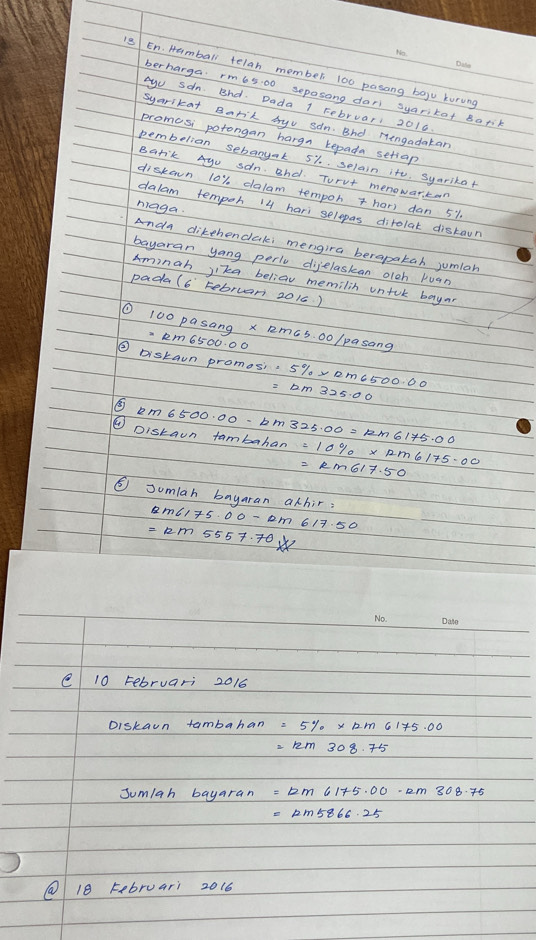 No. Date
13 En. Hambali telah membeli 100 pasang baju kurung
berharga rm 65.00 sepasang dari syarikat Batik
Ayu Sdn. Bhd. Pada 1 Februari 2016.
Syarikat Batik Ayu Sdn. Bhd Mengadakan
promosi potongan harga kepada setiap
pembelian sebanyak 5%. Selain itu, syarikat
Batik Ayu Sdn. Bhd. Turut menawarkan
diskaun 10% dalam tempoh 7 hari dan 5%
dalam tempoh 14 hari selepas ditolak diskaun
niaga.
Anda dikehendaki mengira berapakah jumlah
bayaran yang perlu dijelaskan oleh Puan
Aminah jika beliau memilih untuk bayar
pada (6 Februari 2016.)
① 100 pasang × RM65.00/pasang
= RM6500.00
② Diskaun promosi = 5% × RM6500.00
= RM 325.00
③ RM 6500.00 - RM325.00 = RM6175.00
④ Diskaun tambahan = 10% × RM6175.00
= RM617.50
⑤ Jumlah bayaran akhir =
RM6175.00 - RM 617.50
= RM 5557.70
No. Date
@ 10 Februari 2016
Diskaun tambahan = 5% × RM 6175.00
= RM 308.75
Jumlah bayaran = RM 6175.00 - RM 308.75
= RM5866.25
@ 18 Februari 2016